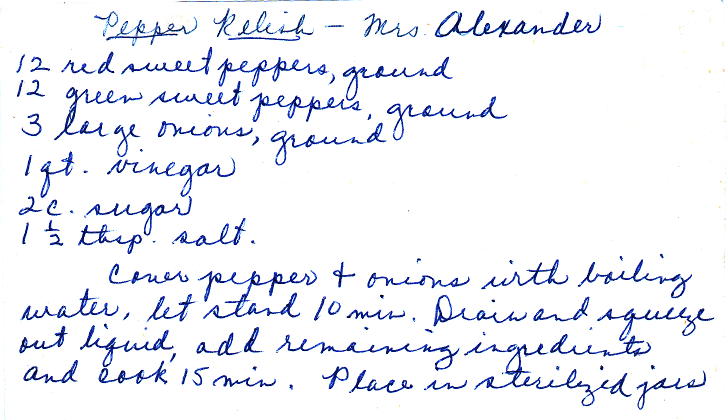 Pepper Relish - Mrs. Alexander
12 red sweet peppers, ground
12 green sweet peppers, ground
3 large onions, ground
1 qt. vinegar
2 c. sugar
1 1/2 tbsp. salt.
Cover pepper + onions with boiling
water, let stand 10 min. Drain and squeeze
out liquid, add remaining ingredients
and cook 15 min. Place in sterilized jars